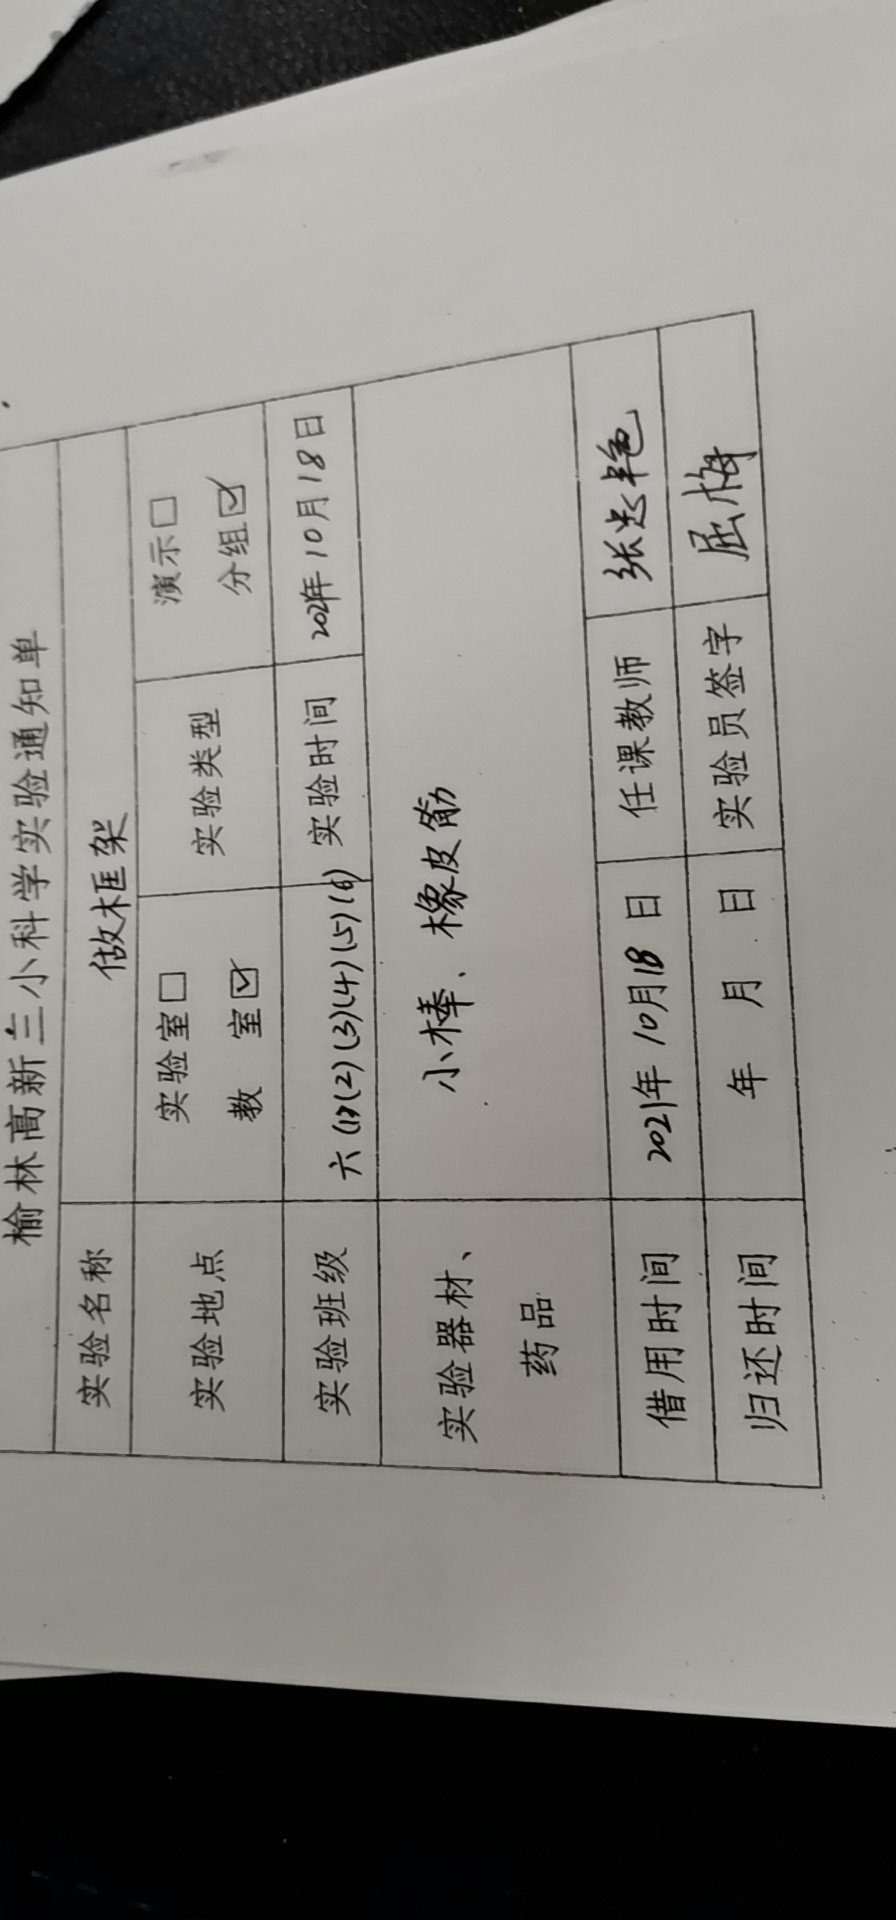 榆林高新三小科学实验通知单
实验名称 做框架
实验地点 实验室□ 教 室☑ 实验类型 演示□ 分组☑
实验班级 六(1)(2)(3)(4)(5)(6) 实验时间 2021年10月18日
实验器材、药品 小棒、橡皮筋
借用时间 2021年10月18日 任课教师 张
归还时间 年 月 日 实验员签字 屈梅